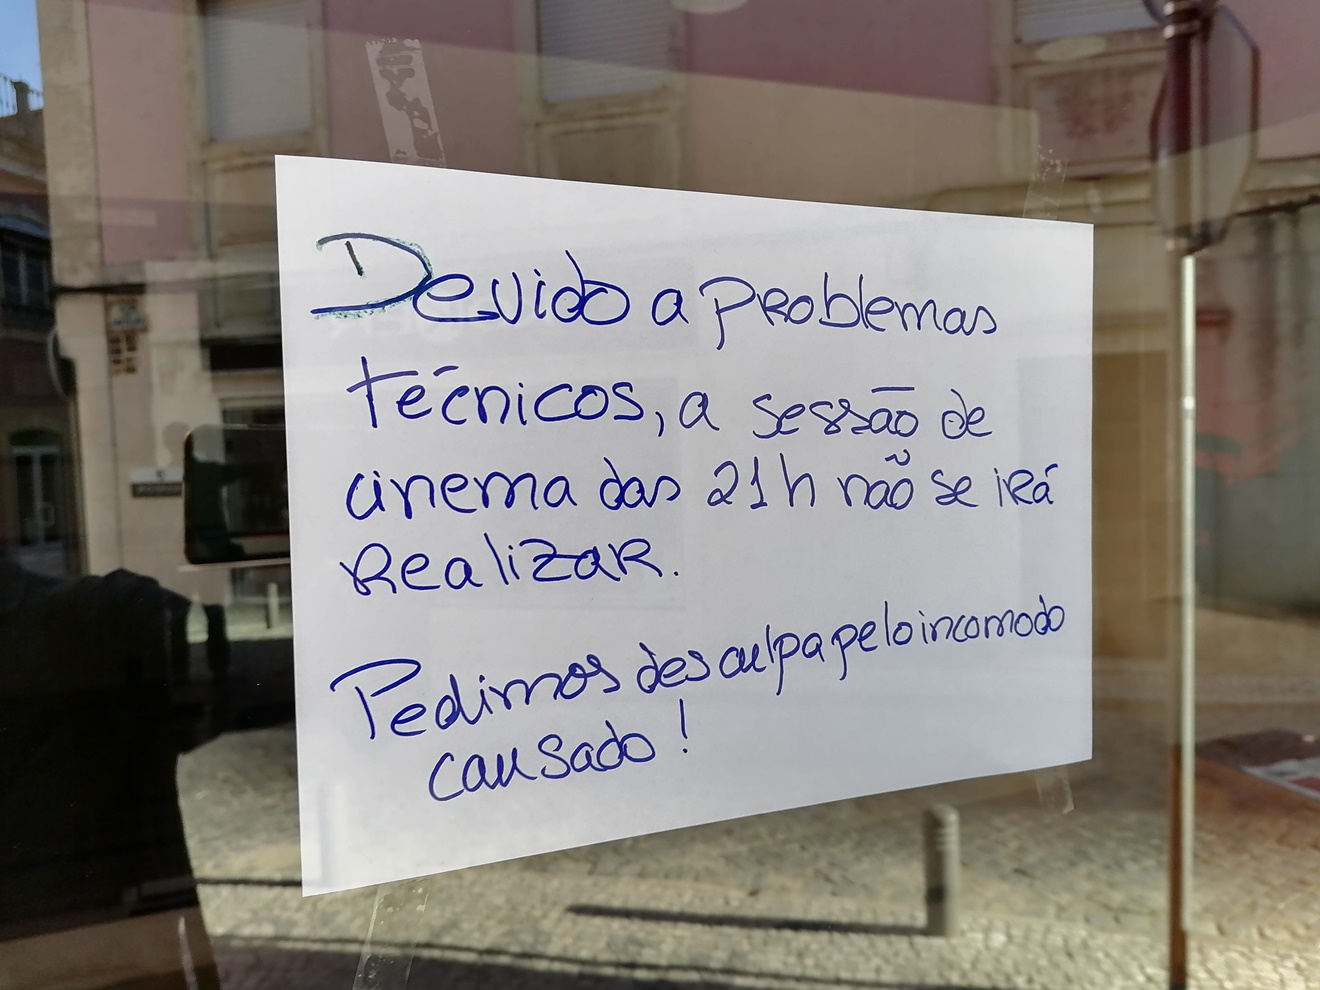 Devido a problemas
técnicos, a sessão de
cinema das 21h não se irá
Realizar.
Pedimos desculpa pelo incomodo
causado!